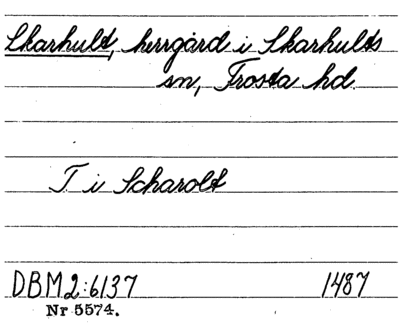 Skarhult, herrgård i Skarhults
sn, Frosta hd.
T i Scharolt
DBM2:6137 1487
Nr 5574.